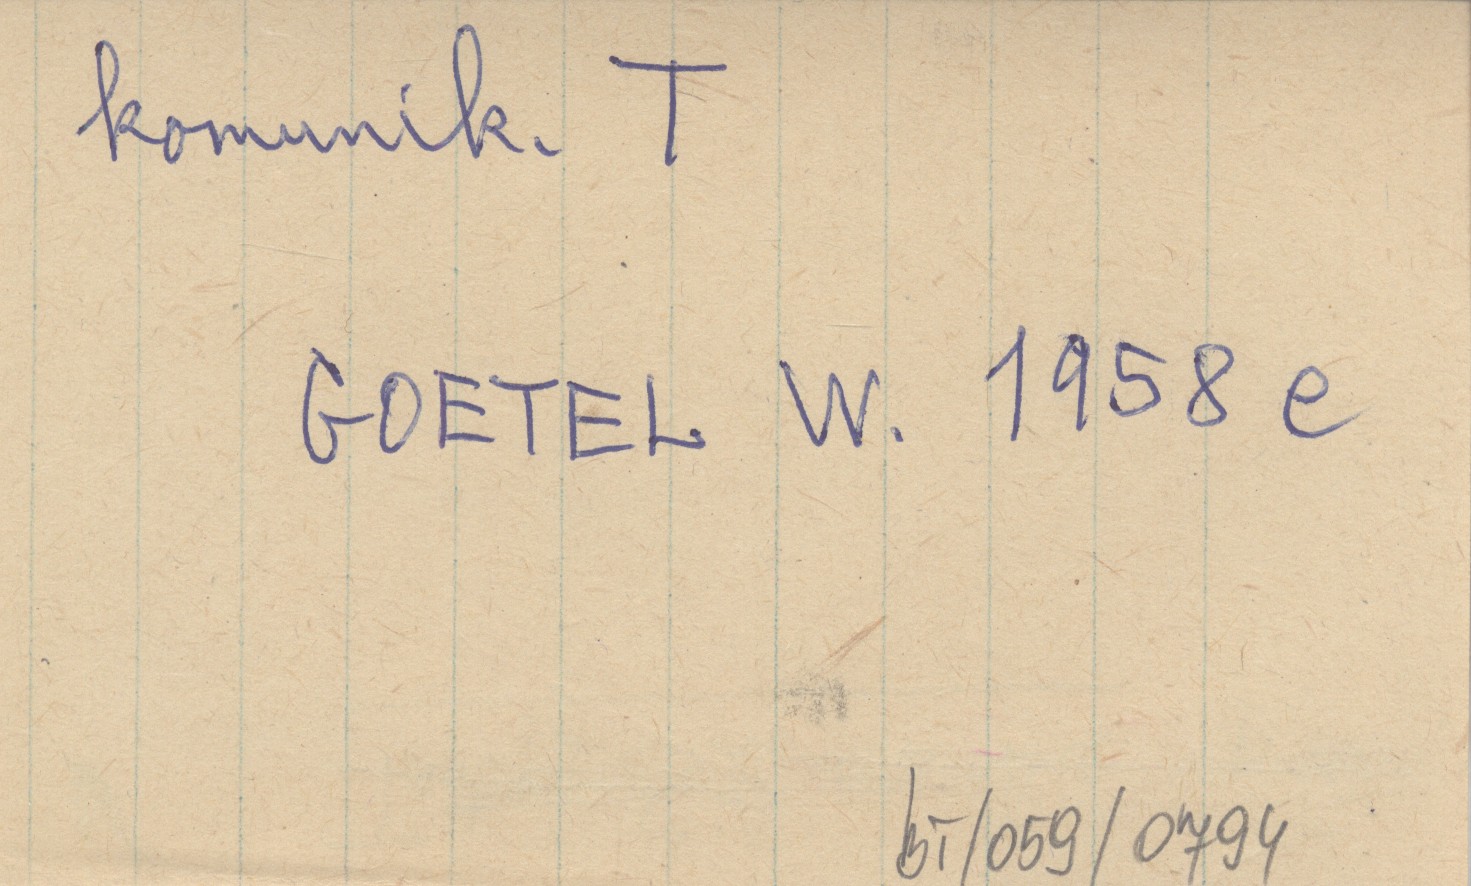 komunik. T
GOETEL W. 1958 e
bT/059/0794